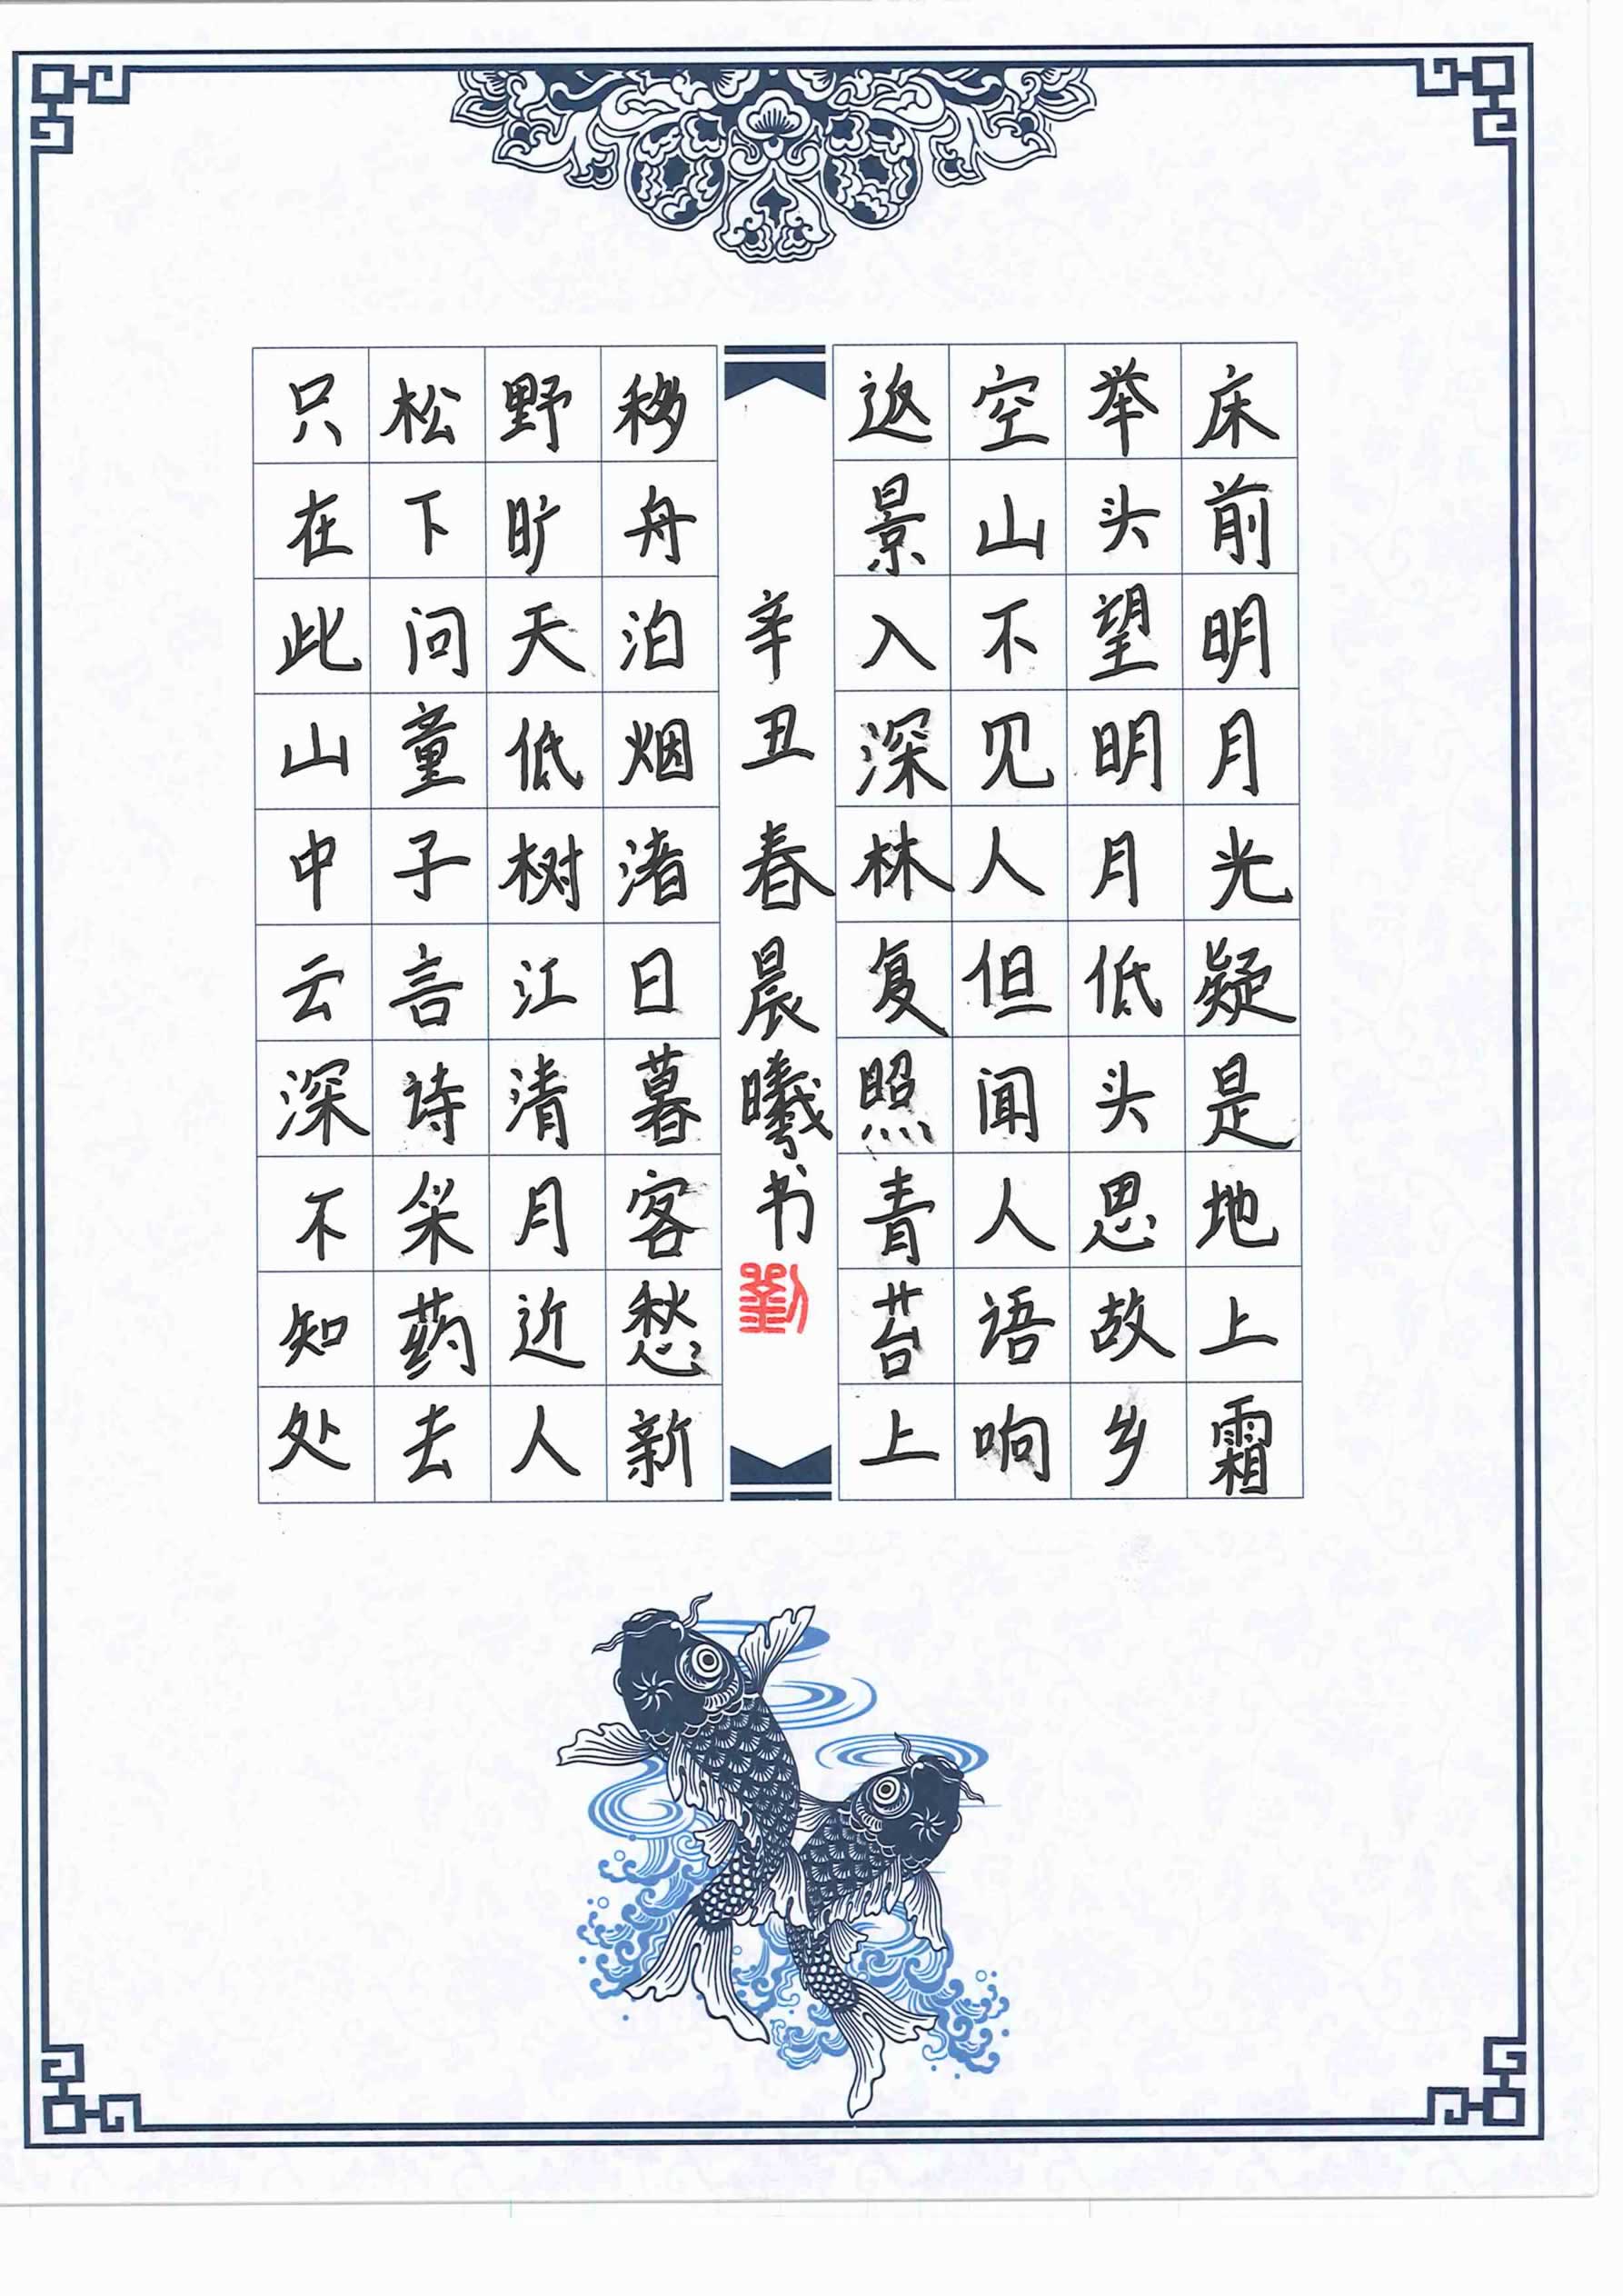 床前明月光疑是地上霜
举头望明月低头思故乡
空山不见人但闻人语响
返景入深林复照青苔上
辛丑春晨曦书
劉
移舟泊烟渚日暮客愁新
野旷天低树江清月近人
松下问童子言诗采药去
只在此山中云深不知处